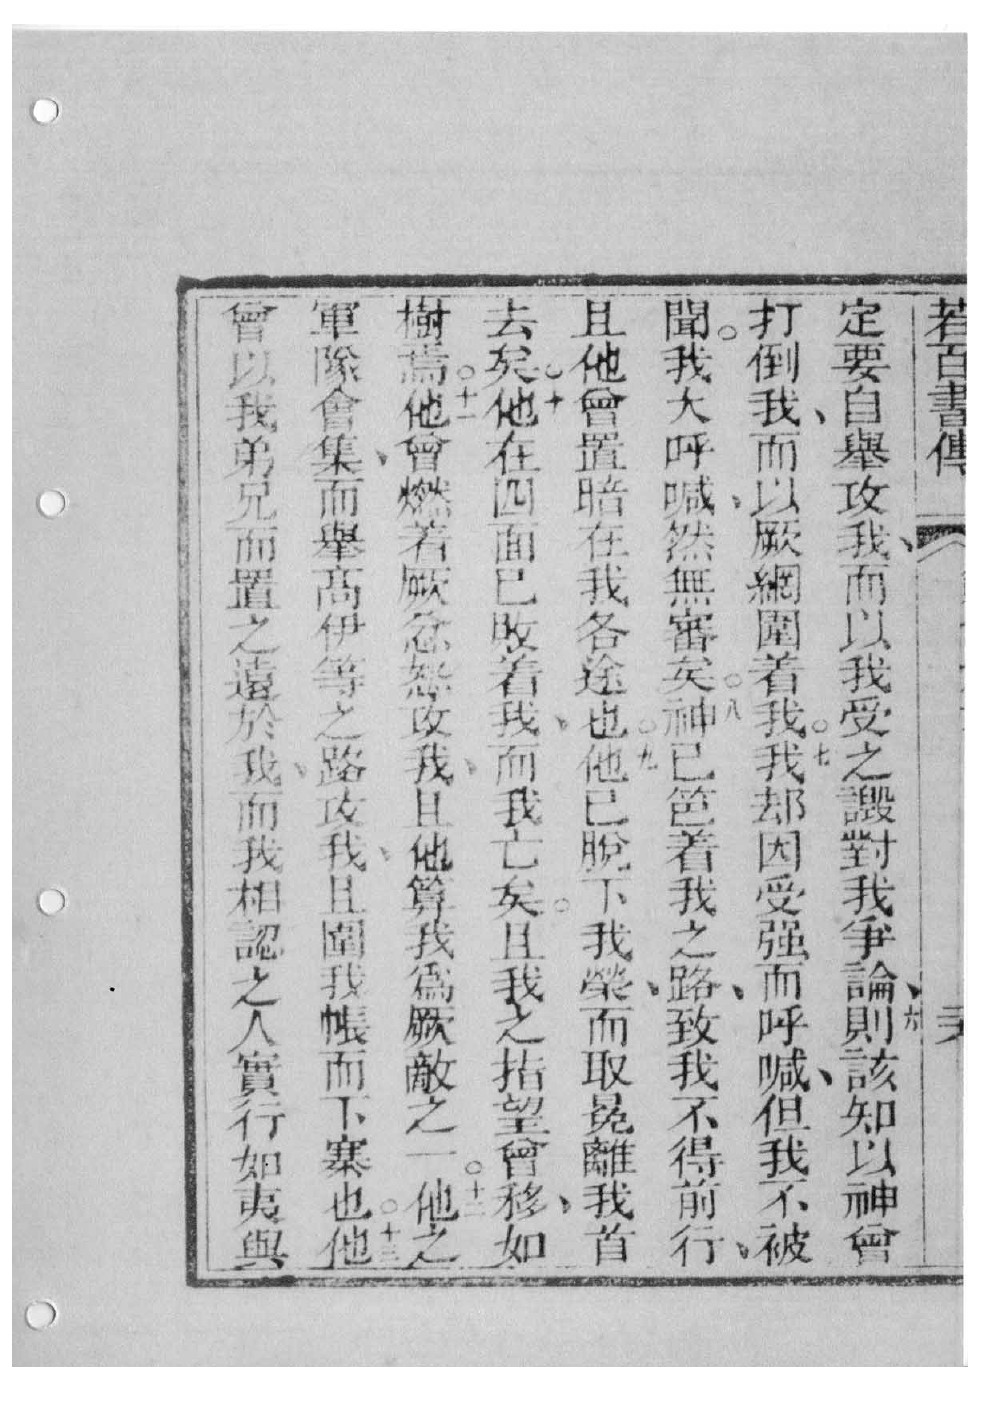 若百書傳
定要自舉攻我、而以我受之譭對我爭論、○六則該知以神曾
打倒我、而以厥網圍着我○七我却因受强而呼喊、但我不被
聞。我大呼喊、然無審矣○八神已笆着我之路、致我不得前行、
且他曾置暗在我各途也○九他已脫下我榮、而取冕離我首
去矣○十他在四面已敗着我、而我亡矣。且我之指望曾移、如
樹焉○十一他曾燃着厥忿怒攻我、且他算我爲厥敵之一○十二他之
軍隊會集、而舉高伊等之路攻我、且圍我帳而下寨也○十三他
曾以我弟兄而置之遠於我、而我相認之人實行如夷與